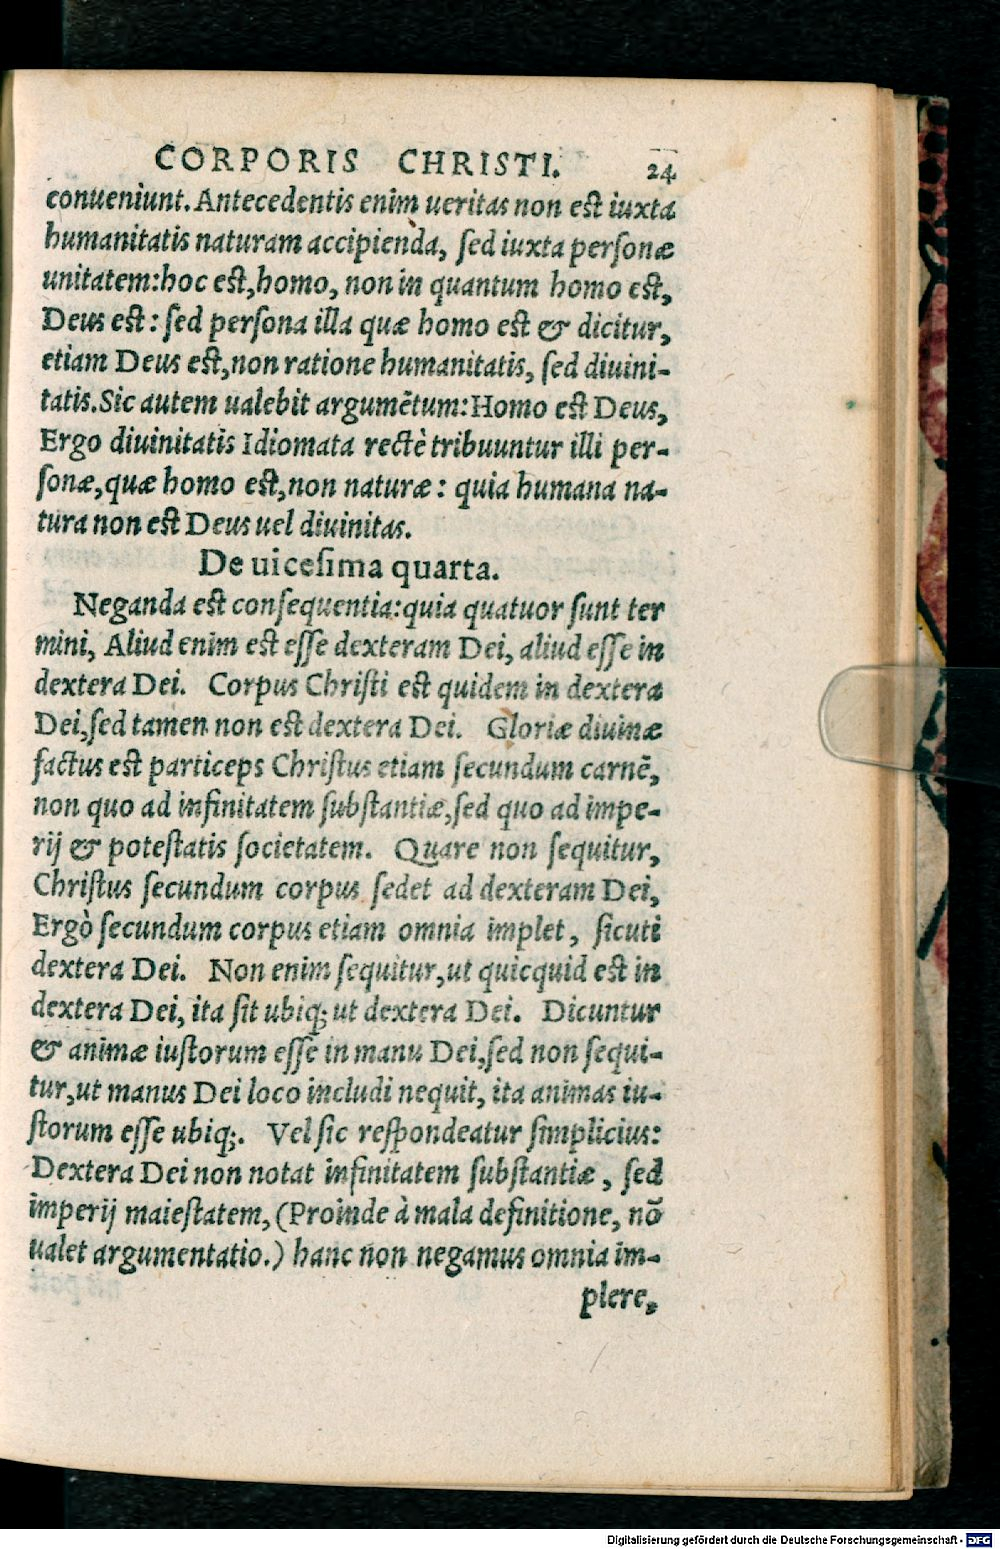 CORPORIS CHRISTI. 24
conueniunt. Antecedentis enim ueritas non est iuxta
humanitatis naturam accipienda, sed iuxta personæ
unitatem: hoc est, homo, non in quantum homo est,
Deus est: sed persona illa quæ homo est & dicitur,
etiam Deus est, non ratione humanitatis, sed diuini-
tatis. Sic autem ualebit argumētum: Homo est Deus,
Ergo diuinitatis Idiomata rectè tribuuntur illi per-
sonæ, quæ homo est, non naturæ: quia humana na-
tura non est Deus uel diuinitas.
De uicesima quarta.
Neganda est consequentia: quia quatuor sunt ter
mini, Aliud enim est esse dexteram Dei, aliud esse in
dextera Dei. Corpus Christi est quidem in dextera
Dei, sed tamen non est dextera Dei. Gloriæ diuinæ
factus est particeps Christus etiam secundum carnē,
non quo ad infinitatem substantiæ, sed quo ad impe-
rij & potestatis societatem. Quare non sequitur,
Christus secundum corpus sedet ad dexteram Dei,
Ergò secundum corpus etiam omnia implet, sicuti
dextera Dei. Non enim sequitur, ut quicquid est in
dextera Dei, ita sit ubiq; ut dextera Dei. Dicuntur
& animæ iustorum esse in manu Dei, sed non sequi-
tur, ut manus Dei loco includi nequit, ita animas iu-
storum esse ubiq;. Vel sic respondeatur simplicius:
Dextera Dei non notat infinitatem substantiæ, sed
imperij maiestatem, (Proinde à mala definitione, nō
ualet argumentatio.) hanc non negamus omnia im-
plere,
Digitalisierung gefördert durch die Deutsche Forschungsgemeinschaft - DFG